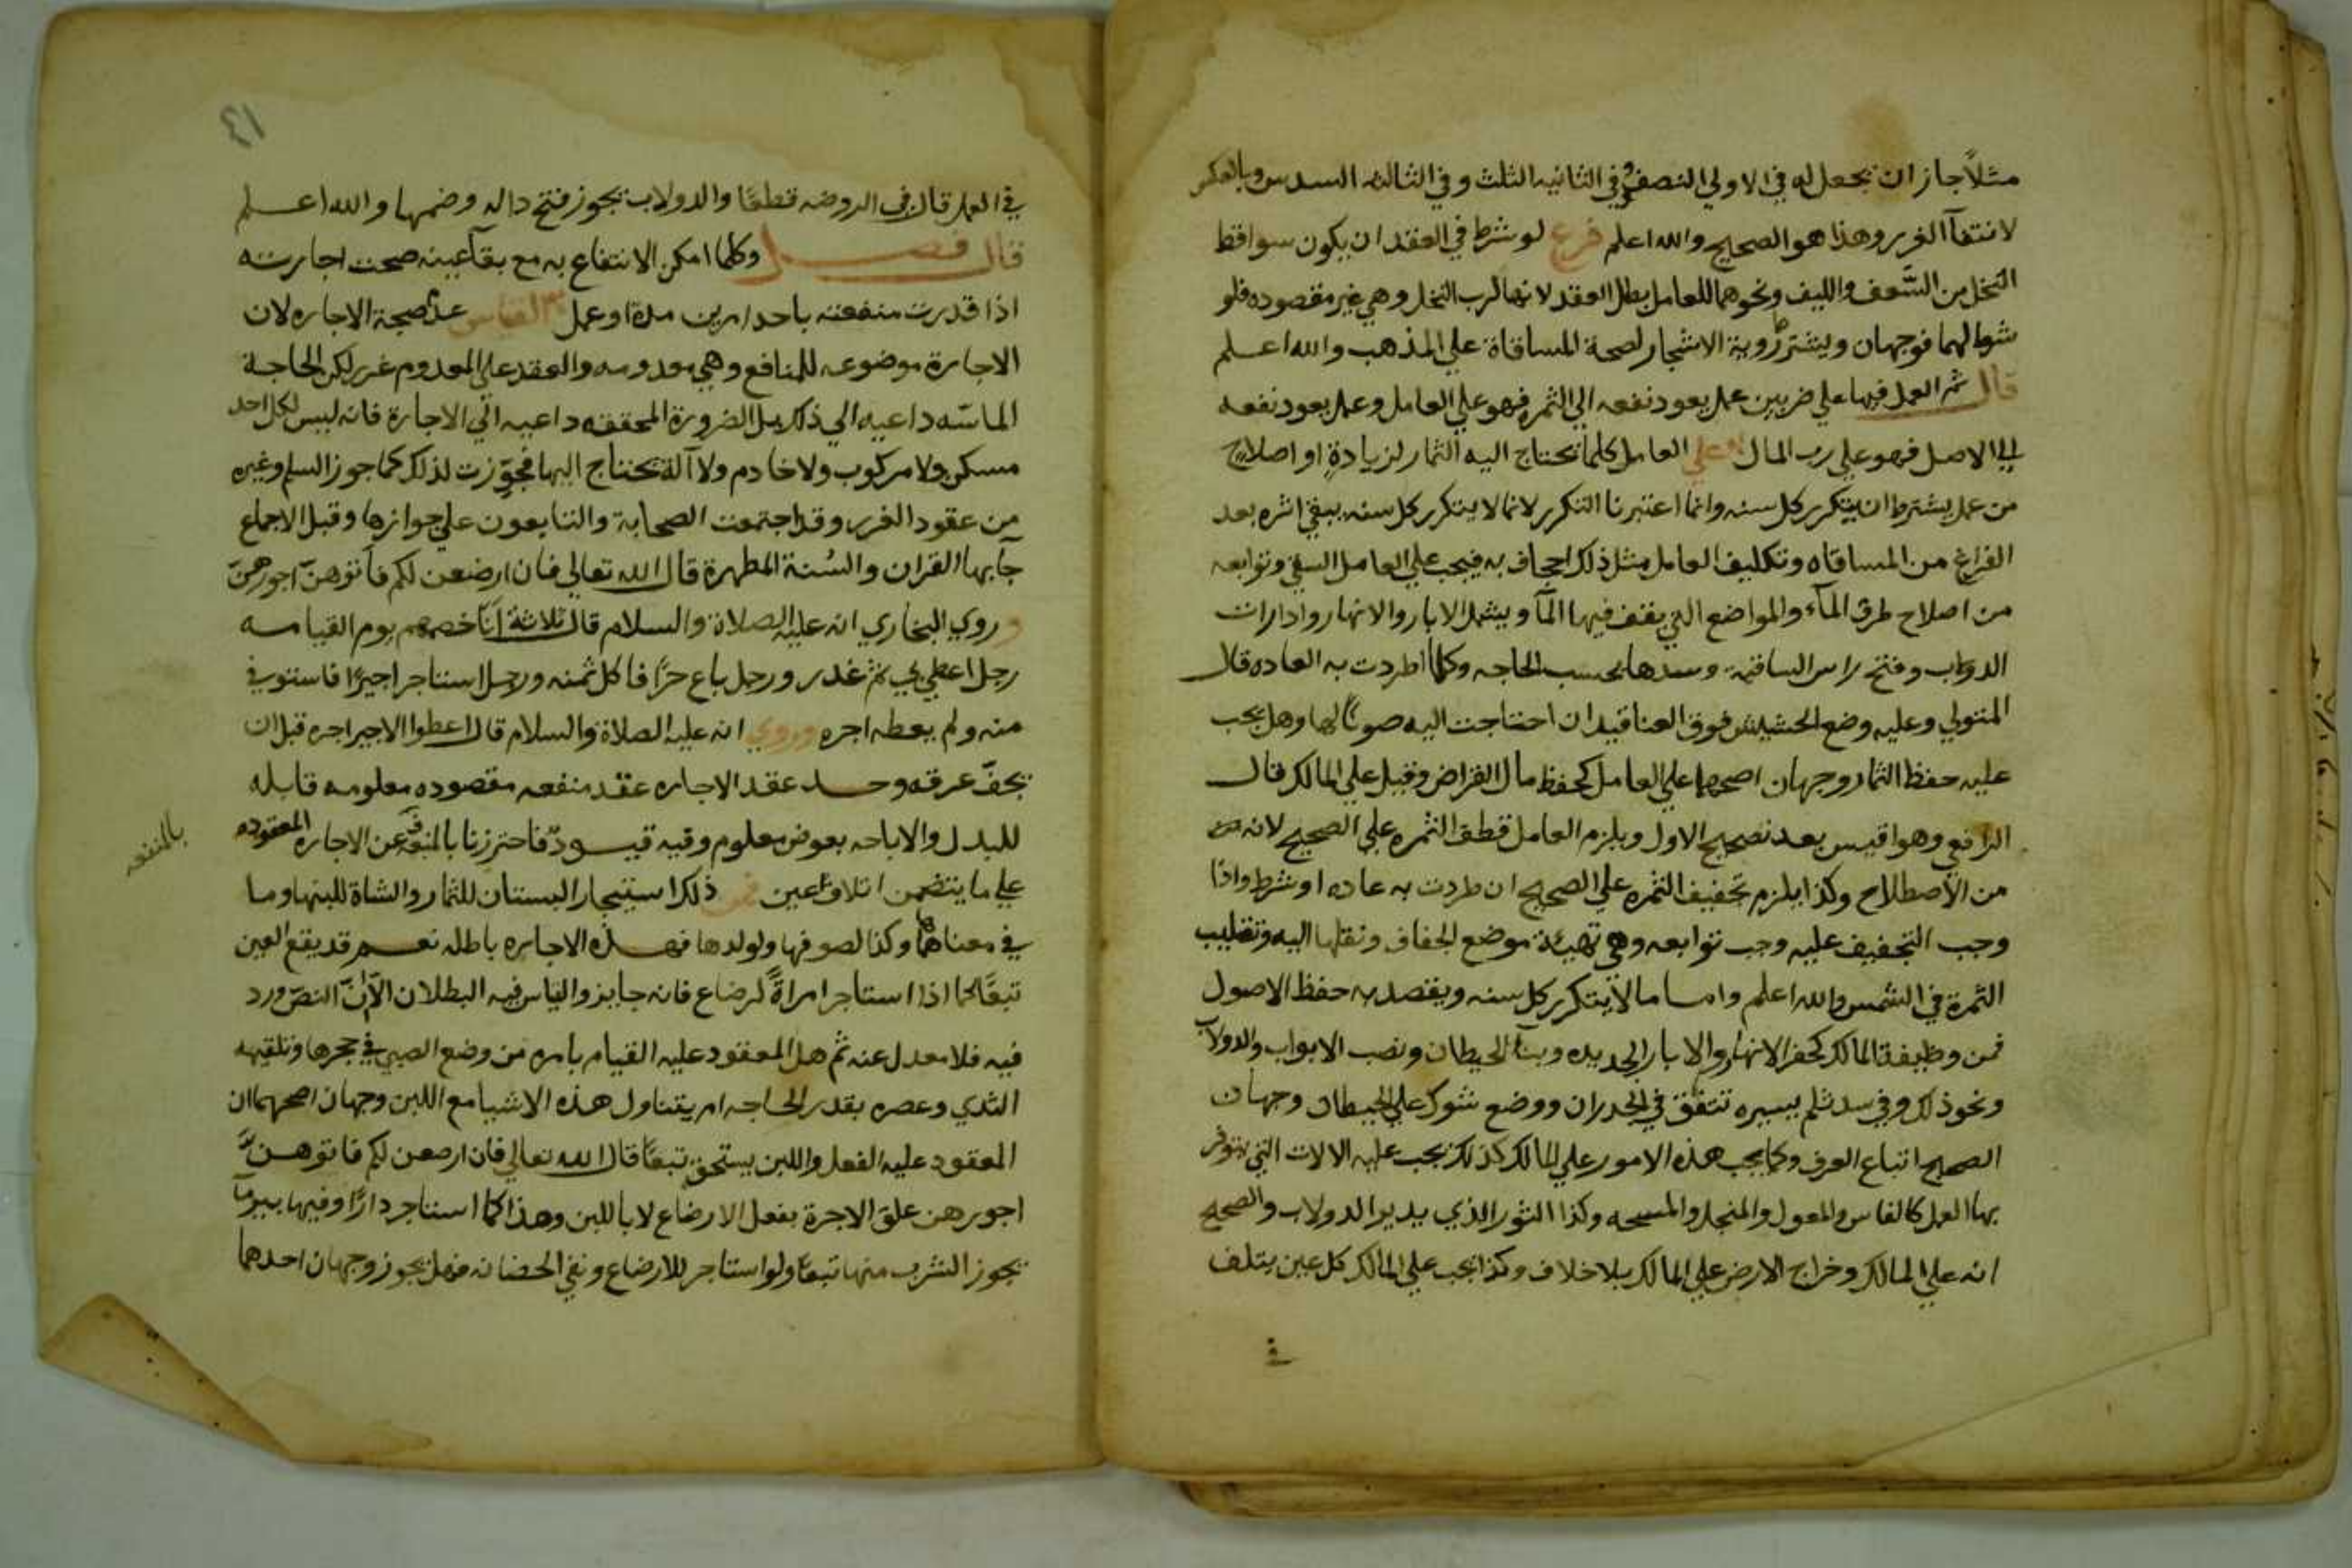 مثلاً جاز ان يجعل له في الاولي النصف وفي الثانيه الثلث وفي الثالثه السدس وبالعكس
لانتفآ الغرر وهذا هو الصحيح والله اعلم فرع لو شرط في العقد ان يكون سواقط
النخل من السَّعف والليف ونحوهما للعامل بطل العقد لانها لرب النخل وهي غير مقصوده فلو
شرط لهما فوجهان ويشترط روية الاشجار لصحة المساقاة علي المذهب والله اعلم
قال ثم العمل فيها علي ضربين عمل يعود نفعه الي الثمره فهو علي العامل وعمل يعود نفعه
الي الاصل فهو علي رب المال وعلي العامل كلما تحتاج اليه الثمار لزيادةٍ او اصلاح
من عمل يشترط ان يتكرر كل سنه وانما اعتبرنا التكرر لانما لا يتكرر كل سنه يبقي اثره بعد
الفراغ من المساقاه وتكليف العامل مثل ذلك اجحاف به فيجب علي العامل السقي وتوابعه
من اصلاح طرق المآء والمواضع التي يقف فيها المآ ويشمل الابار والانهار وادارات
الدواب وفتح راس الساقيه وسدها بحسب الحاجه وكلما اطردت به العاده قال
المتولي وعليه وضع الحشيش فوق العناقيد ان احتاجت اليه صونًا لها وهل يجب
عليه حفظ الثمار وجهان اصحهما علي العامل كحفظ مال القراض وقيل علي المالك قال
الرافعي وهو اقيس بعد تصحيح الاول ويلزم العامل قطف الثمره علي الصحيح لانه
من الاصطلاح وكذا يلزم تجفيف الثمره علي الصحيح ان طردت به عاده او شرط واذا
وجب التجفيف عليه وجب توابعه وهي تهيئة موضع الجفاف ونقلها اليه وتقليب
الثمرة في الشمس والله اعلم واما ما لا يتكرر كل سنه ويقصد به حفظ الاصول
فمن وظيفة المالك كحفر الانهار والابار الجديده وبنآ الحيطان ونصب الابواب والدولاب
ونحو ذلك وفي سد ثلم يسيره تتفق في الجدران ووضع شوك علي الحيطان وجهان
الصحيح اتباع العرف وكما يجب هذه الامور علي المالك كذلك يجب عليه الالات التي يتوفر
بها العمل كالفاس والمعول والمنجل والمسحه وكذا الثور الذي يدير الدولاب والصحيح
انه علي المالك وخراج الارض علي المالك بلا خلاف وكذا يجب علي المالك كل عين يتلف
في
٤١
في العمل قال في الروضه قطعًا والدولاب يجوز فتح داله وضمها والله اعلم
قال فصل وكلما امكن الانتفاع به مع بقآ عينه صحت اجارته
اذا قدرت منفعته باحد امرين مدة او عمل القياس عدم صحة الاجاره لان
الاجارة موضوعه للمنافع وهي معدومه والعقد علي المعدوم غرر لكن الحاجة
الماسّه داعيه الي ذلك بل الضرورة المحققه داعيه الي الاجارة فانه ليس لكل احد
مسكن ولا مركوب ولا خادم ولا آلة يحتاج اليها فجوّزت لذلك كما جوز السلم وغيره
من عقود الغرر وقد اجتمعت الصحابة والتابعون علي جوازها وقبل الاجماع
جآ بها القران والسُنة المطهرة قال الله تعالي فان ارضعن لكم فآتوهنّ اجورهنّ
وروي البخاري انه عليه الصلاة والسلام قال ثلاثة انا خصمهم يوم القيامه
رجل اعطي بي ثم غدر ورجل باع حرًا فاكل ثمنه ورجل استاجر اجيرًا فاستوفي
منه ولم يعطه اجره وروي انه عليه الصلاة والسلام قال اعطوا الاجير اجره قبل ان
يجفّ عرقه وحد عقد الاجاره عقد منفعه مقصوده معلومه قابله
للبدل والاباحه بعوض معلوم وفيه قيود فاحترزنا بالمنفعه عن الاجاره المعقوده
بالمنفعه
علي ما يتضمن اتلاف عين فمن ذلك استيجار البستان للثمار والشاة للبنها وما
في معناهما وكذا لصوفها ولولدها فهذه الاجاره باطله نعم قد يقع العين
تبعًا كما اذا استاجر امراةً لرضاع فانه جايز والقياس فيه البطلان الا انّ النصّ ورد
فيه فلا معدل عنه ثم هل المعقود عليه القيام بامره من وضع الصبي في حجرها وتلقيمه
الثدي وعصره بقدر الحاجه ام يتناول هذه الاشيا مع اللبن وجهان اصحهما ان
المعقود عليه الفعل واللبن يستحق تبعًا قال الله تعالي فان ارضعن لكم فاتوهنّ
اجورهن علق الاجرة بفعل الارضاع لا باللبن وهذا كما استاجر دارًا وفيها بير مآ
يجوز الشرب منها تبعًا ولو استاجر للارضاع ونفي الحضانه فهل يجوز وجهان احدهما